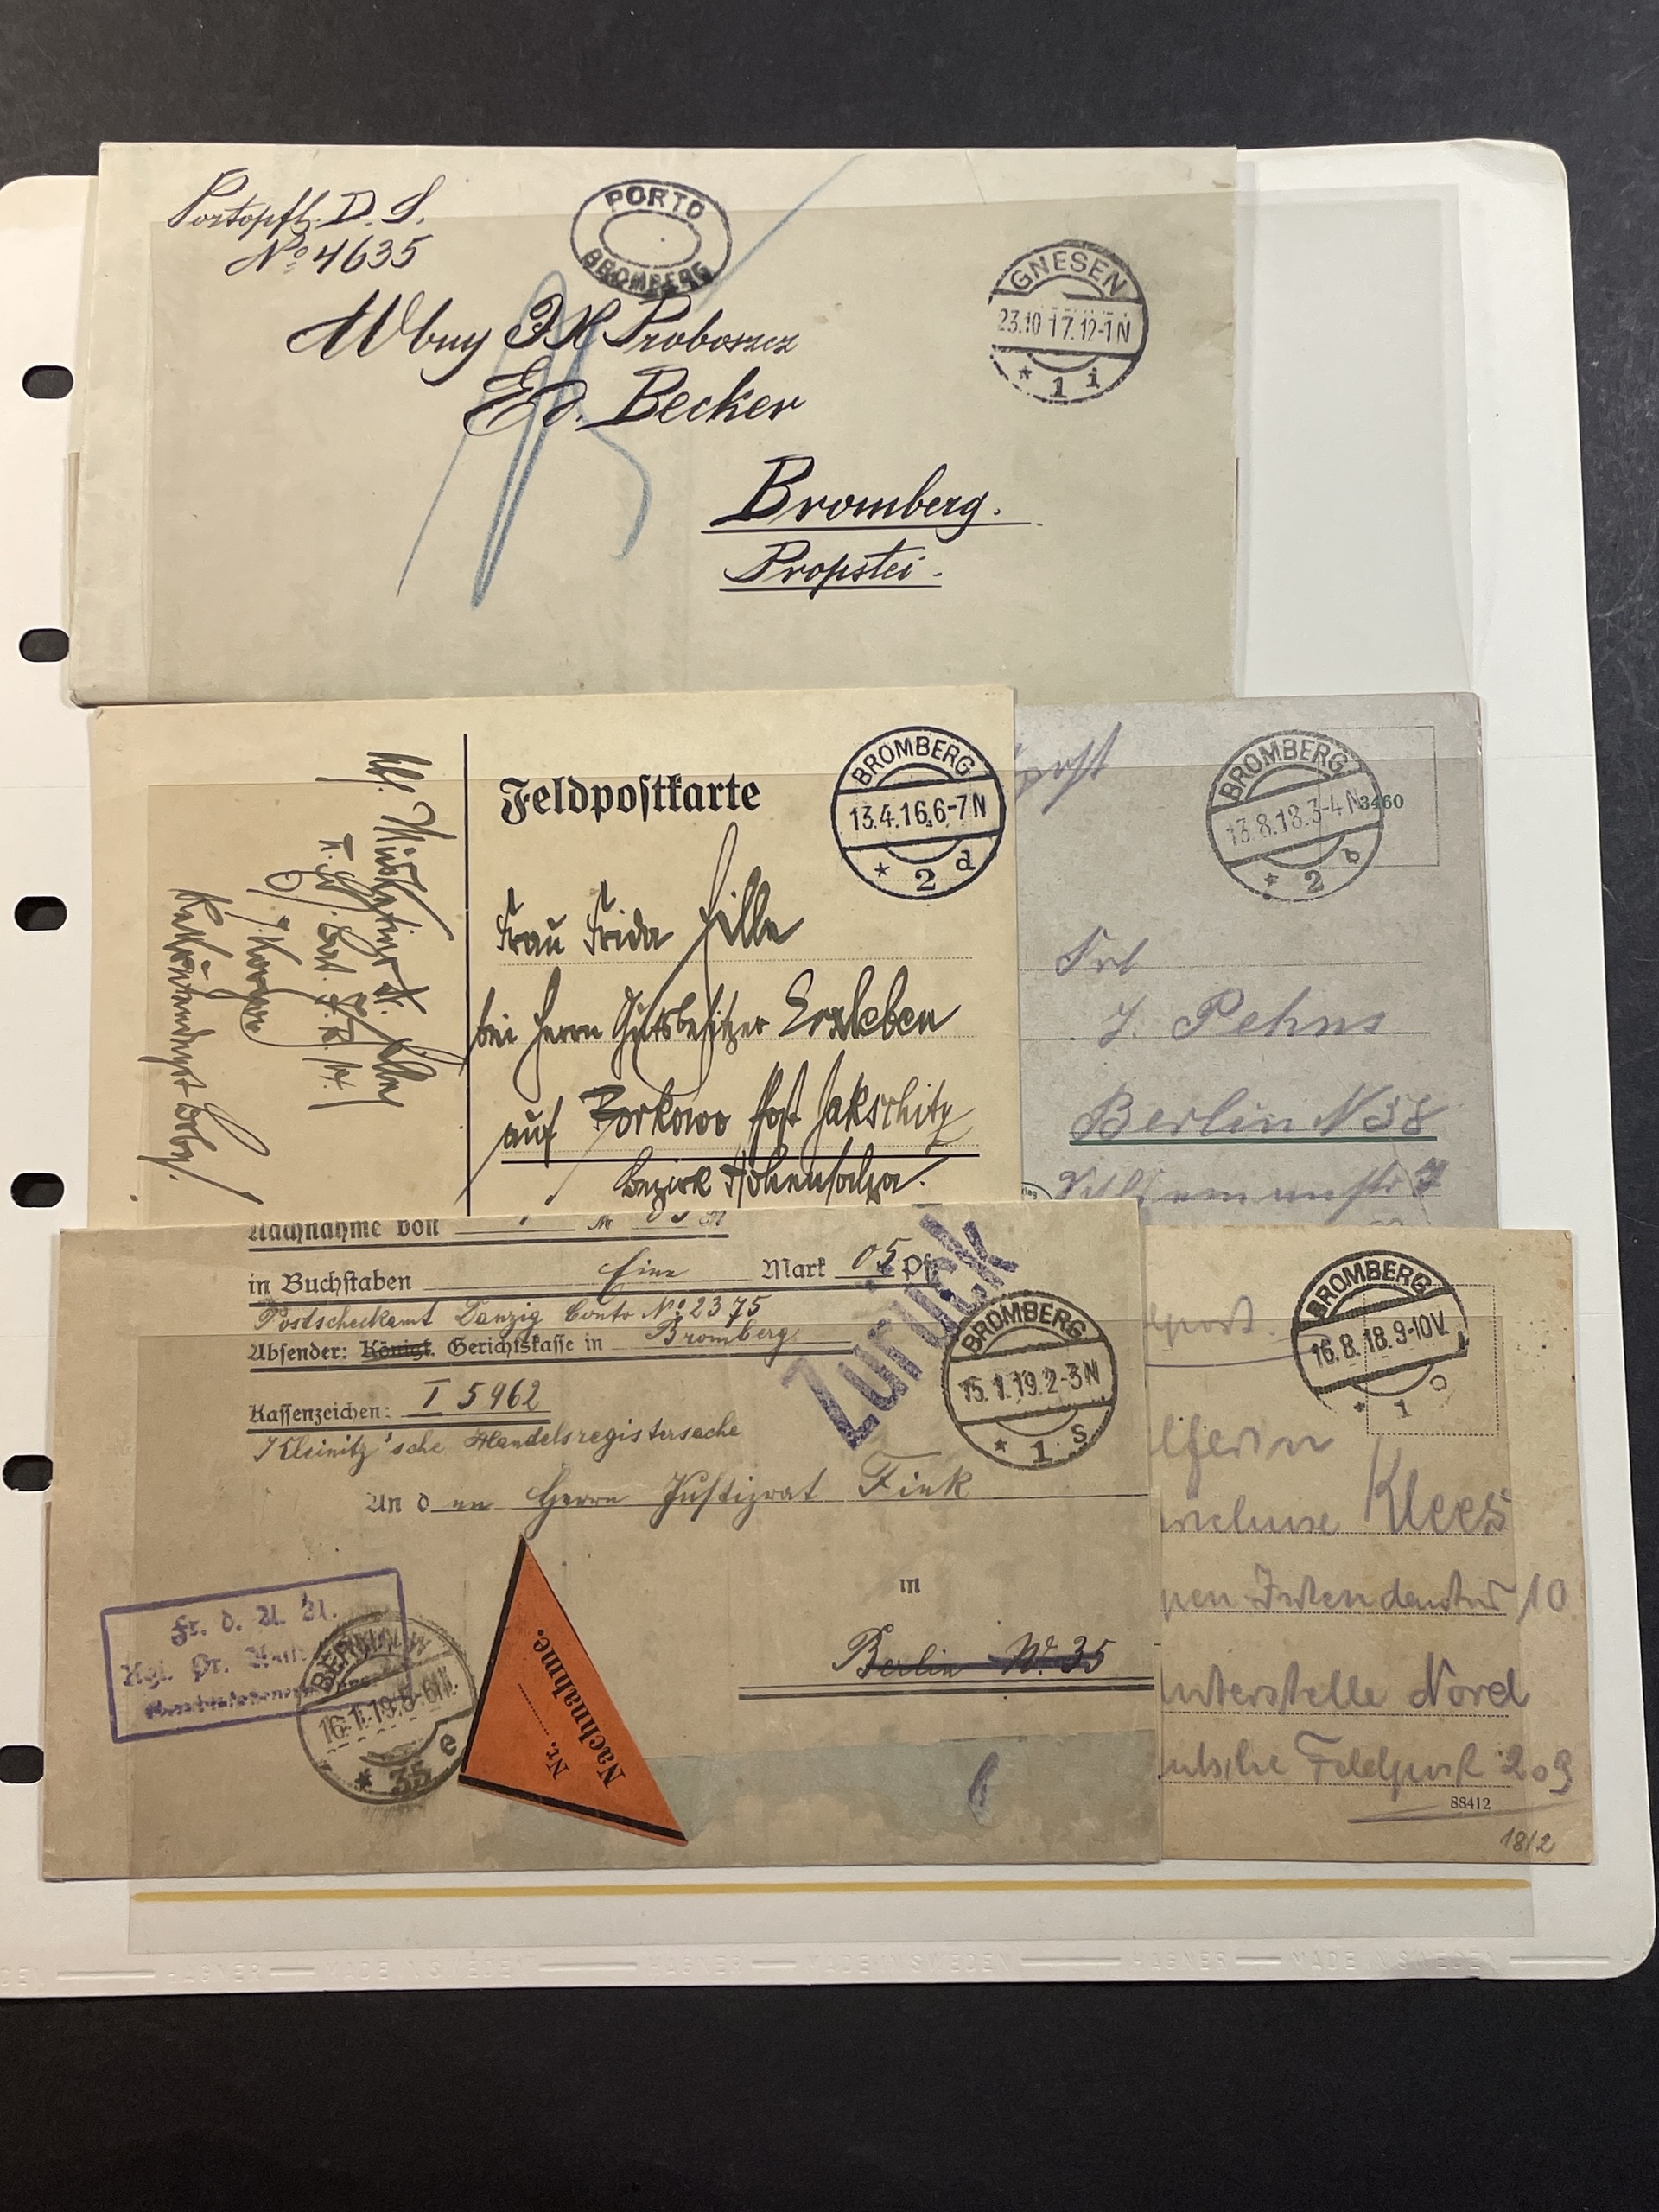 Portopfl. D. S.
No 4635
PORTO
BROMBERG
GNESEN
23.10 17.12-1N
* 1 i
Wbny X Proboszcz
Ed. Becker
Bromberg.
Propstei.
Feldpostkarte
BROMBERG
13.4.16.6-7N
* 2 d
Frau Frida Hille
bei Herrn Gutsbesitzer Erxleben
auf Borkowo Post Jakschitz
Bezirk Hohensalza.
Abs. Musketier
Bat. I.R.
7. Korp
post
BROMBERG
13.8.18.3-4N
* 2 b
3460
Frl
J. Pehns
Berlin N 58
Nachnahme von
in Buchstaben Eine Mark 05 Pf.
Postscheckamt Danzig Conto No 2375
Absender: Königl. Gerichtskasse in Bromberg
Kassenzeichen: I 5962
Kleinitz'sche Handelsregistersache
An den Herrn Justizrat Fink
in
Berlin W. 35
Zurück
BROMBERG
15.1.19.2-3N
* 1 s
Fr. d. A. A.
Kgl. Pr.
16.1.19.5-6N.
* 35 e
Nachnahme.
Nr.
post.
BROMBERG
16.8.18.9-10V.
* 1
lferin
Klees
Intendantur 10
Nord
utsche Feldpost 209
88412
18/2
HAGNER MADE IN SWEDEN HAGNER HAGNER MADE IN SWEDEN